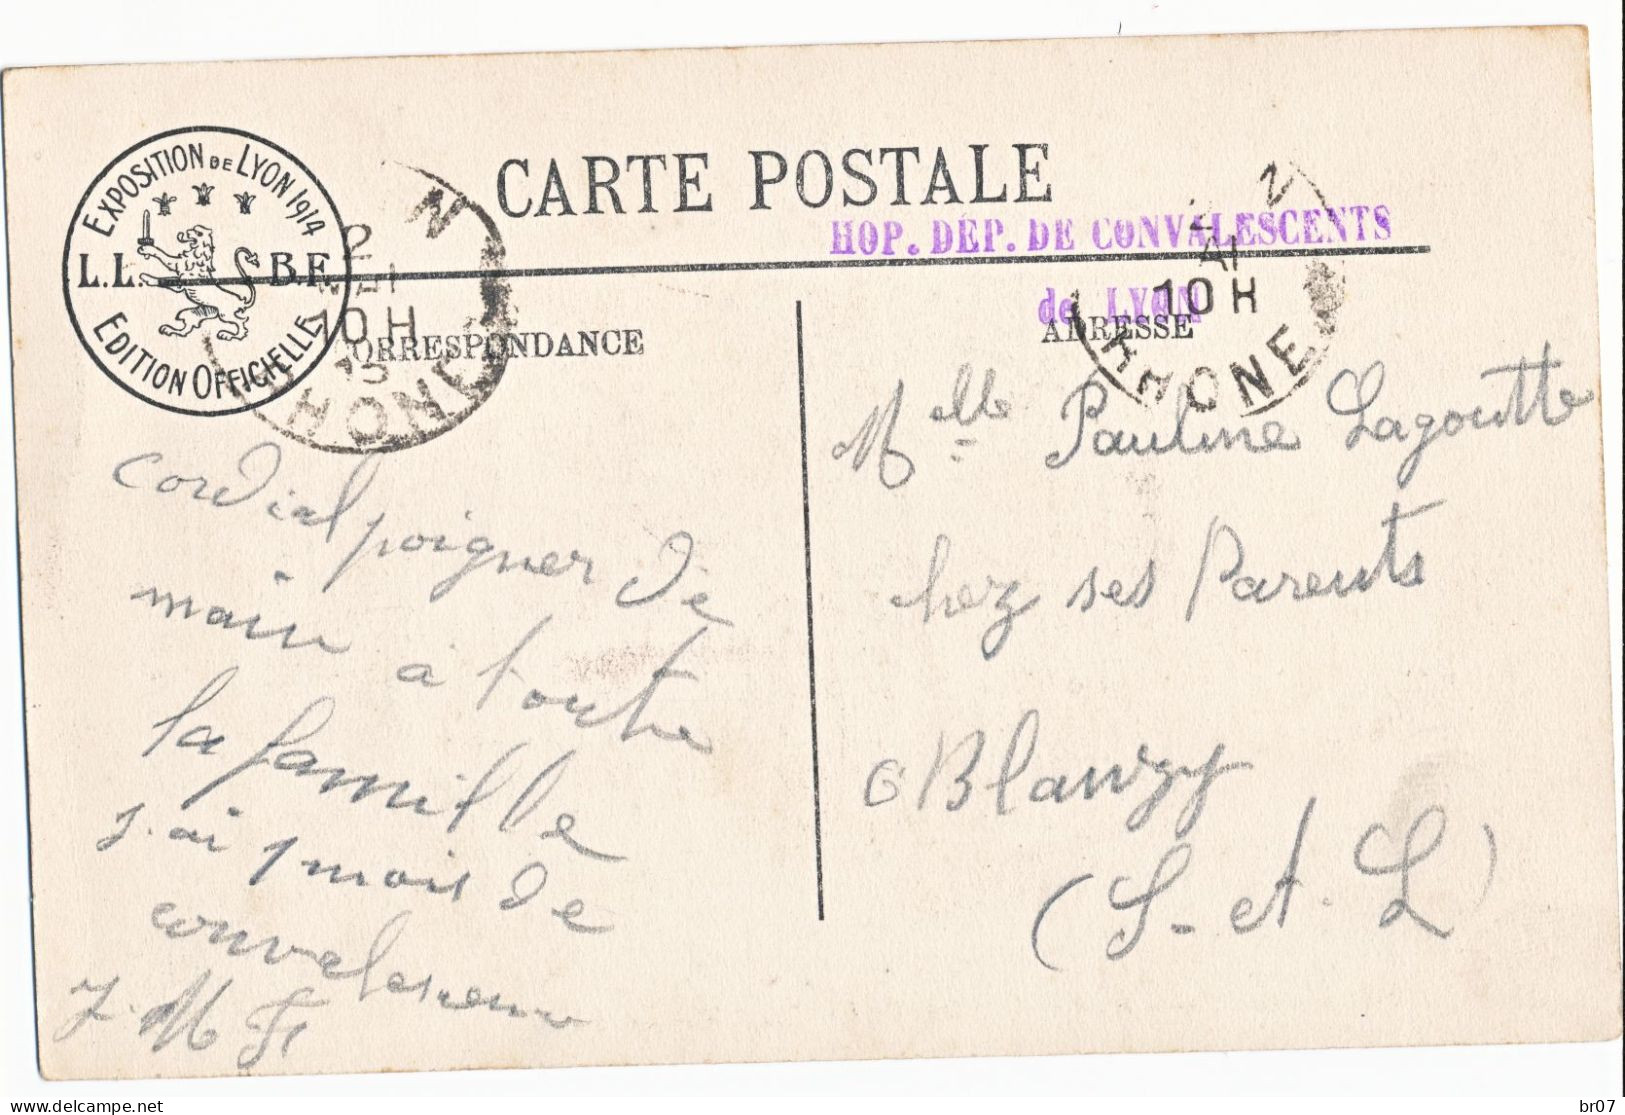 EXPOSITION DE LYON 1914
L.L. B.F.
EDITION OFFICIELLE
CARTE POSTALE
HOP. DÉP. DE CONVALESCENTS
de LYON
CORRESPONDANCE
ADRESSE
N
2
10 H
15
RHONE
N
10 H
RHONE
cordial poigner de
main à toute
la famille
j. ai 1 mois de
J. M F
Melle Pauline Lagoutte
chez ses Parents
Blanzy
(S- et. L)
delcampe.net
br07